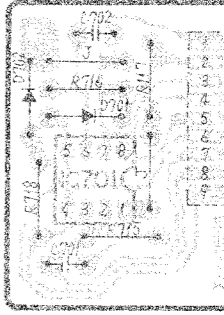 C702
J
D702
R716
R717
D701
5 6 7 8
IC701
4 3 2 1
R718
R715
C701
1
2
3
4
5
6
7
8
9